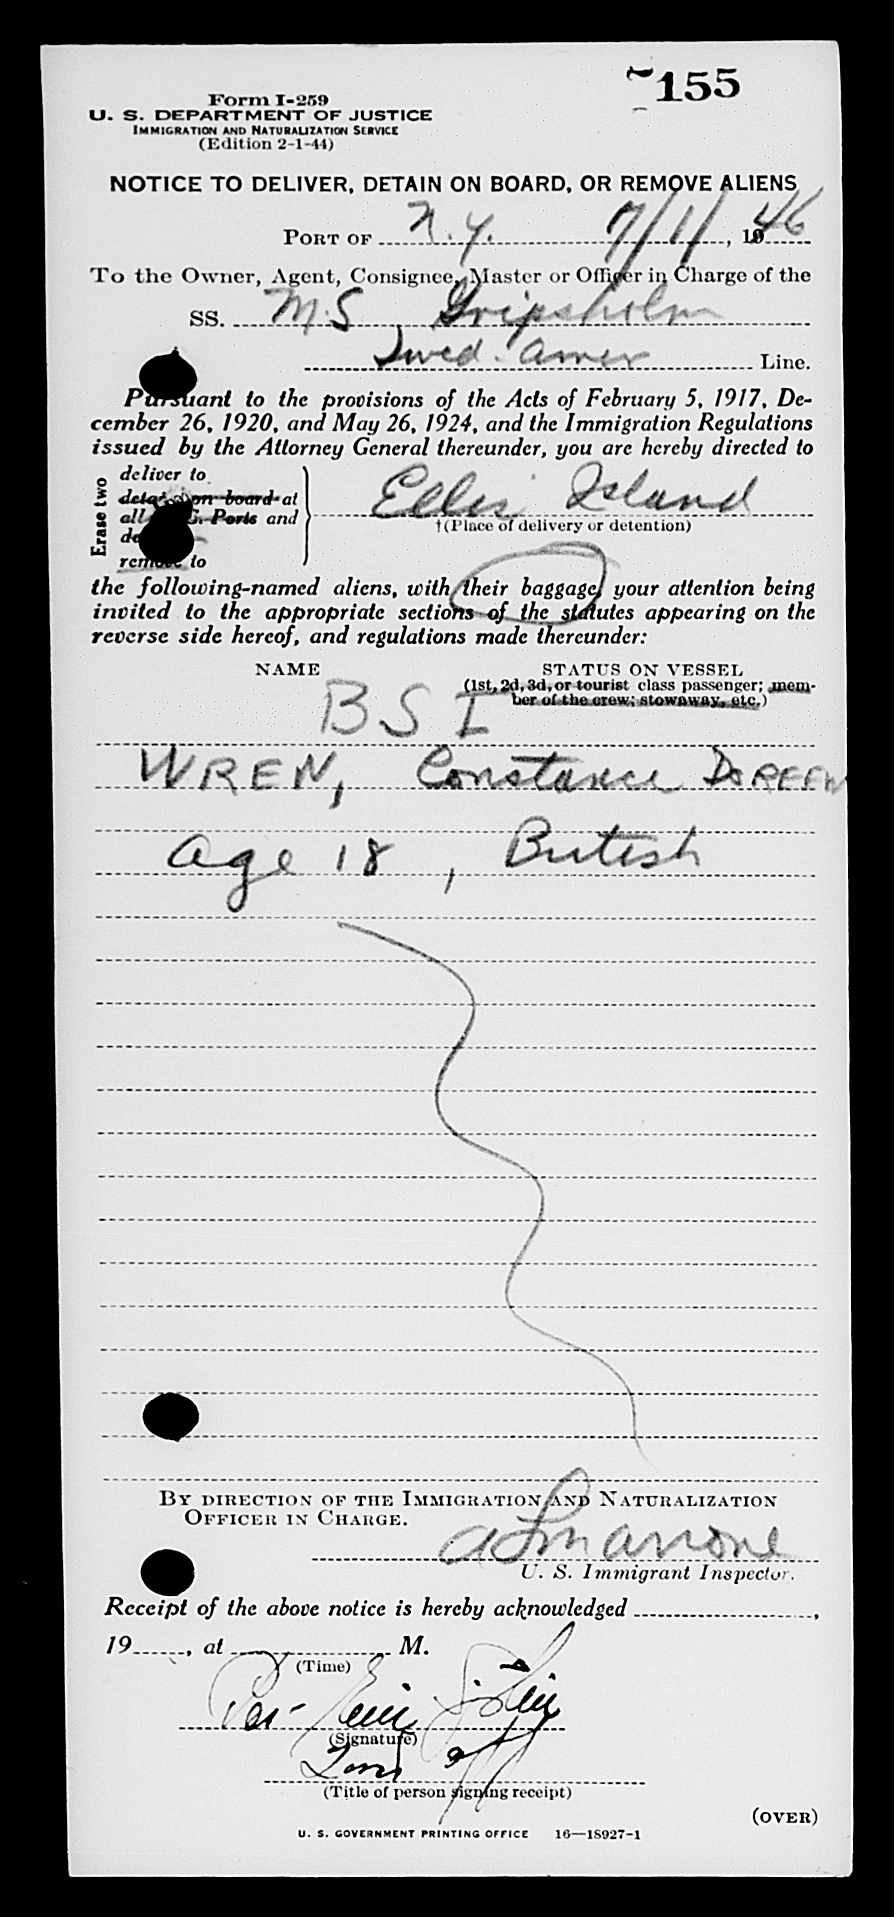 155
Form I-259
U. S. DEPARTMENT OF JUSTICE
IMMIGRATION AND NATURALIZATION SERVICE
(Edition 2-1-44)
NOTICE TO DELIVER, DETAIN ON BOARD, OR REMOVE ALIENS
PORT OF N.Y. 7/1/, 1946
To the Owner, Agent, Consignee, Master or Officer in Charge of the
SS. M.S Gripsholm
Swed. Amer Line.
Pursuant to the provisions of the Acts of February 5, 1917, De-
cember 26, 1920, and May 26, 1924, and the Immigration Regulations
issued by the Attorney General thereunder, you are hereby directed to
Erase two
deliver to
detain on board at
all U.S. Ports and
remove to
Ellis Island
†(Place of delivery or detention)
the following-named aliens, with their baggage, your attention being
invited to the appropriate sections of the statutes appearing on the
reverse side hereof, and regulations made thereunder:
NAME STATUS ON VESSEL
(1st, 2d, 3d, or tourist class passenger; mem-
ber of the crew; stowaway, etc.)
BSI
WREN, Constance DOREEN
age 18, British
BY DIRECTION OF THE IMMIGRATION AND NATURALIZATION
OFFICER IN CHARGE.
U. S. Immigrant Inspector.
Receipt of the above notice is hereby acknowledged ,
19 , at M.
(Time)
Per
(Signature)
(Title of person signing receipt)
(OVER)
U. S. GOVERNMENT PRINTING OFFICE 16—18927-1